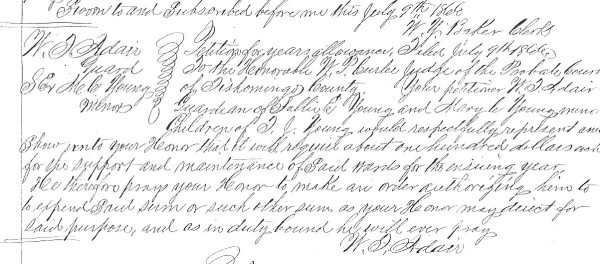 Sworn to and Subscribed before me this July 9th 1866
W. Y. Baker Clerk
W. T. Adair Petition for years allowance, Filed July 9th 1866
Guard To the Honorable Judge of the Probate Court
S E & M C Young of Tishomingo County. Your petitioner W T Adair
Minor Guardian of Sallie E Young and Mary C Young minor
Children of T. J. Young would respectfully represent and
Show unto your Honor that it will require about one hundred dollars each
for the support and maintenance of Said wards for the ensuing year
He therefore prays your Honor to make an order authorizing him to
to expend Said Sum or such other sum as your Honor may direct for
Said purpose, and as in duty bound he will ever pray
W. T. Adair